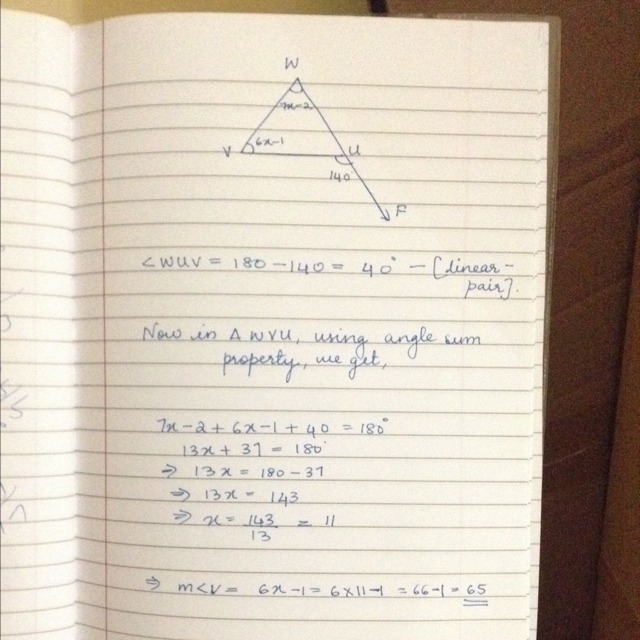 W
7x-2
V
6x-1
U
140
F
<WUV = 180 - 140 = 40° - [linear-
pair].
Now in Δ WVU, using angle sum
property, we get,
7x-2+6x-1+40 = 180°
13x + 37 = 180°
⇒ 13x = 180 - 37
⇒ 13x = 143
⇒ x = 143/13 = 11
⇒ m<V = 6x-1 = 6x11-1 = 66-1 = 65